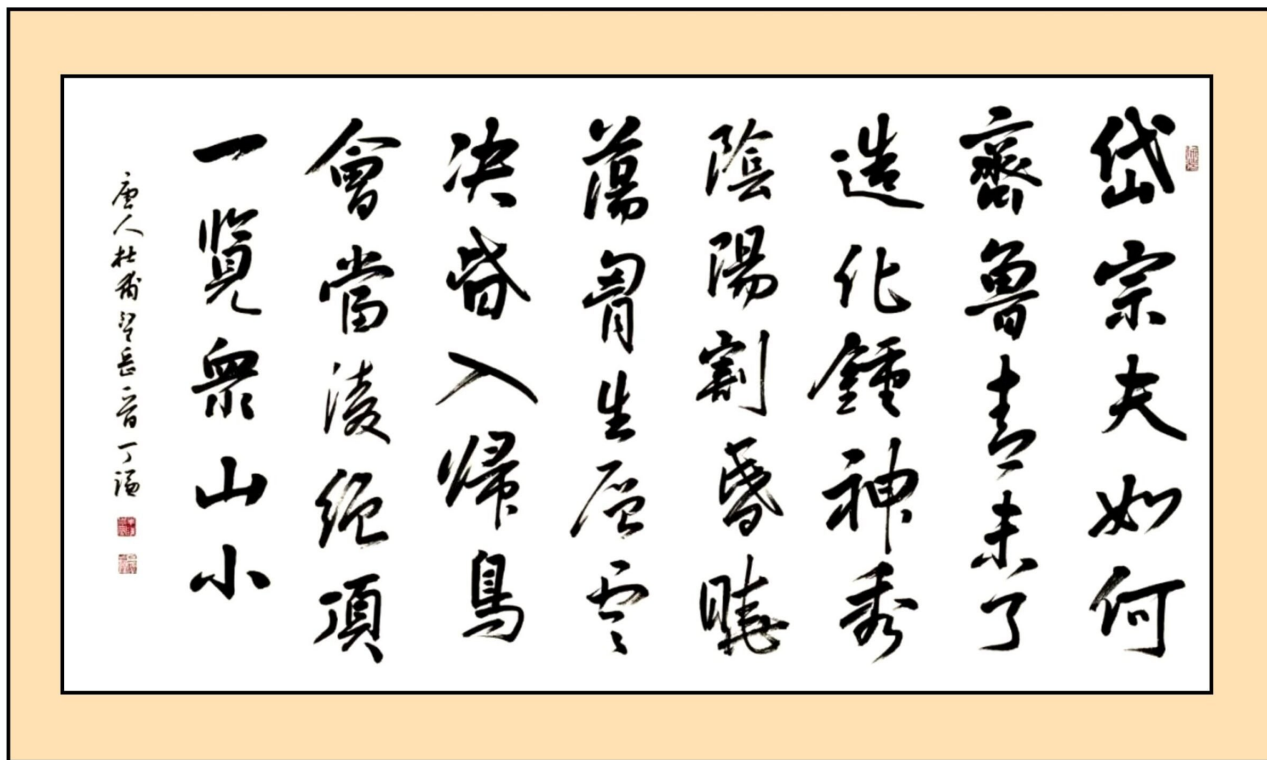 岱宗夫如何
齊魯青未了
造化鍾神秀
陰陽割昏曉
蕩胷生層雲
决眥入歸鳥
會當淩絕頂
一覽衆山小
唐人杜甫望岳一首 丁